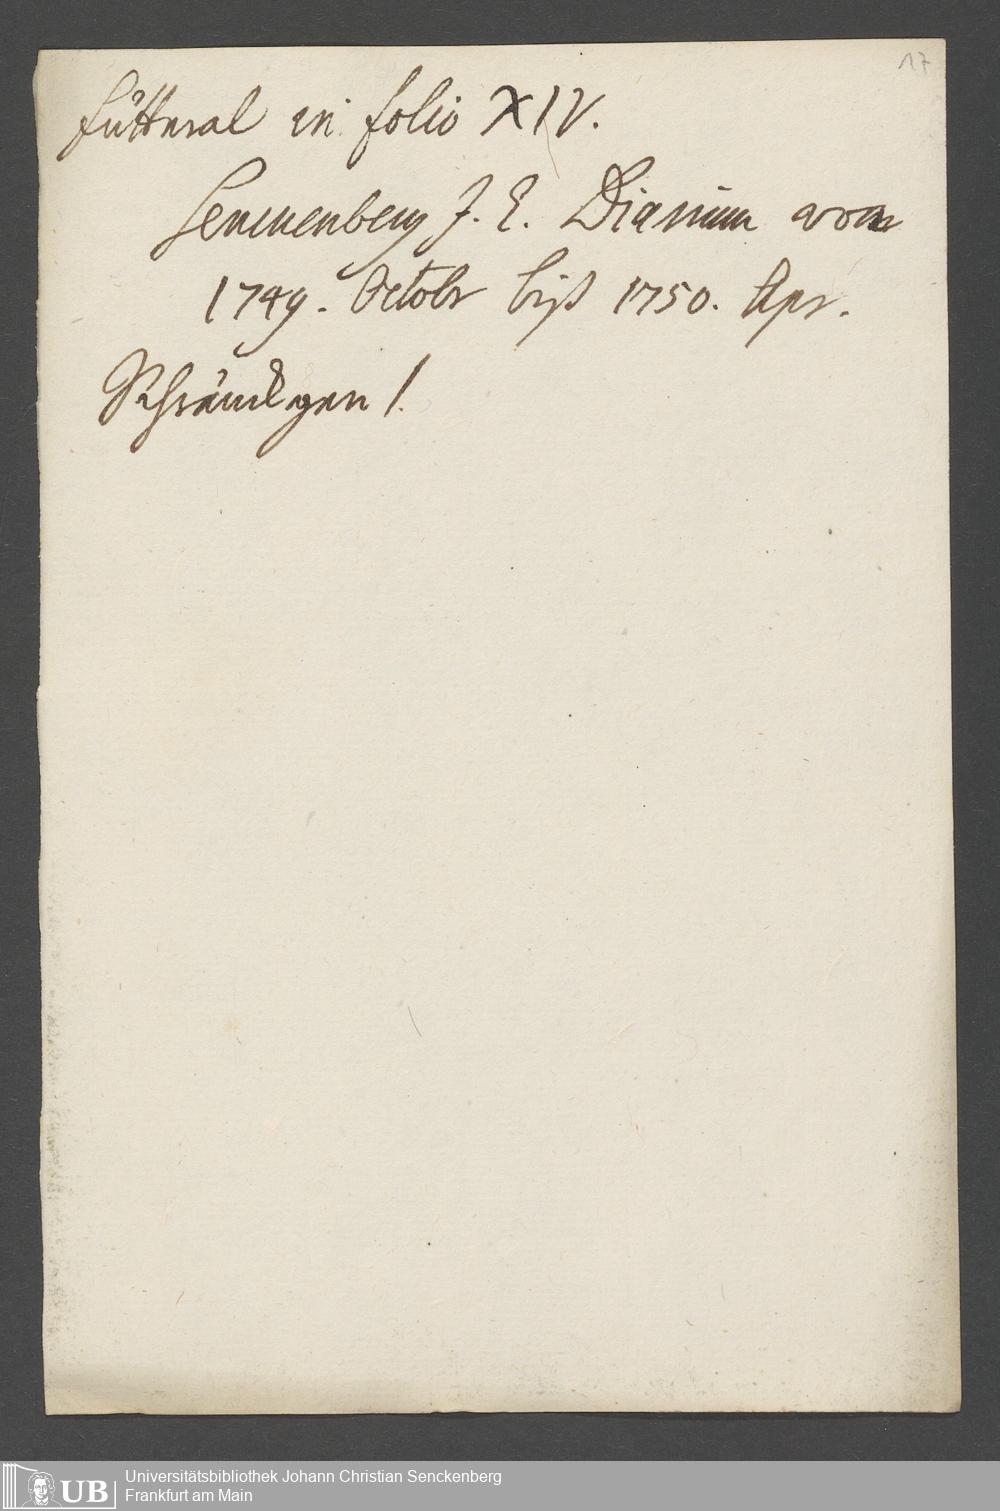 17
Futteral in folio XIV.
Senckenberg J. E. Diarium von
1749. Octobr biß 1750. Apr.
Schränckgen 1.
Universitätsbibliothek Johann Christian Senckenberg
Frankfurt am Main
UB